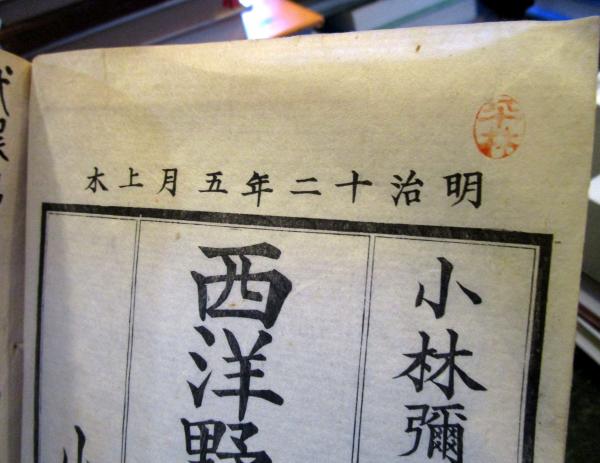 明治十二年五月上木
小林彌
西洋野
小